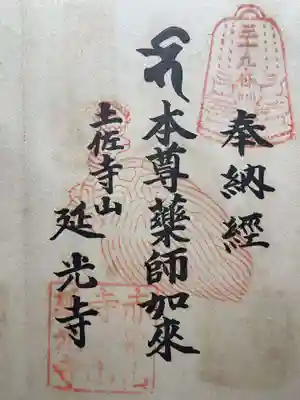 奉納經
本尊藥師如來
土佐寺山
延光寺
三十九番